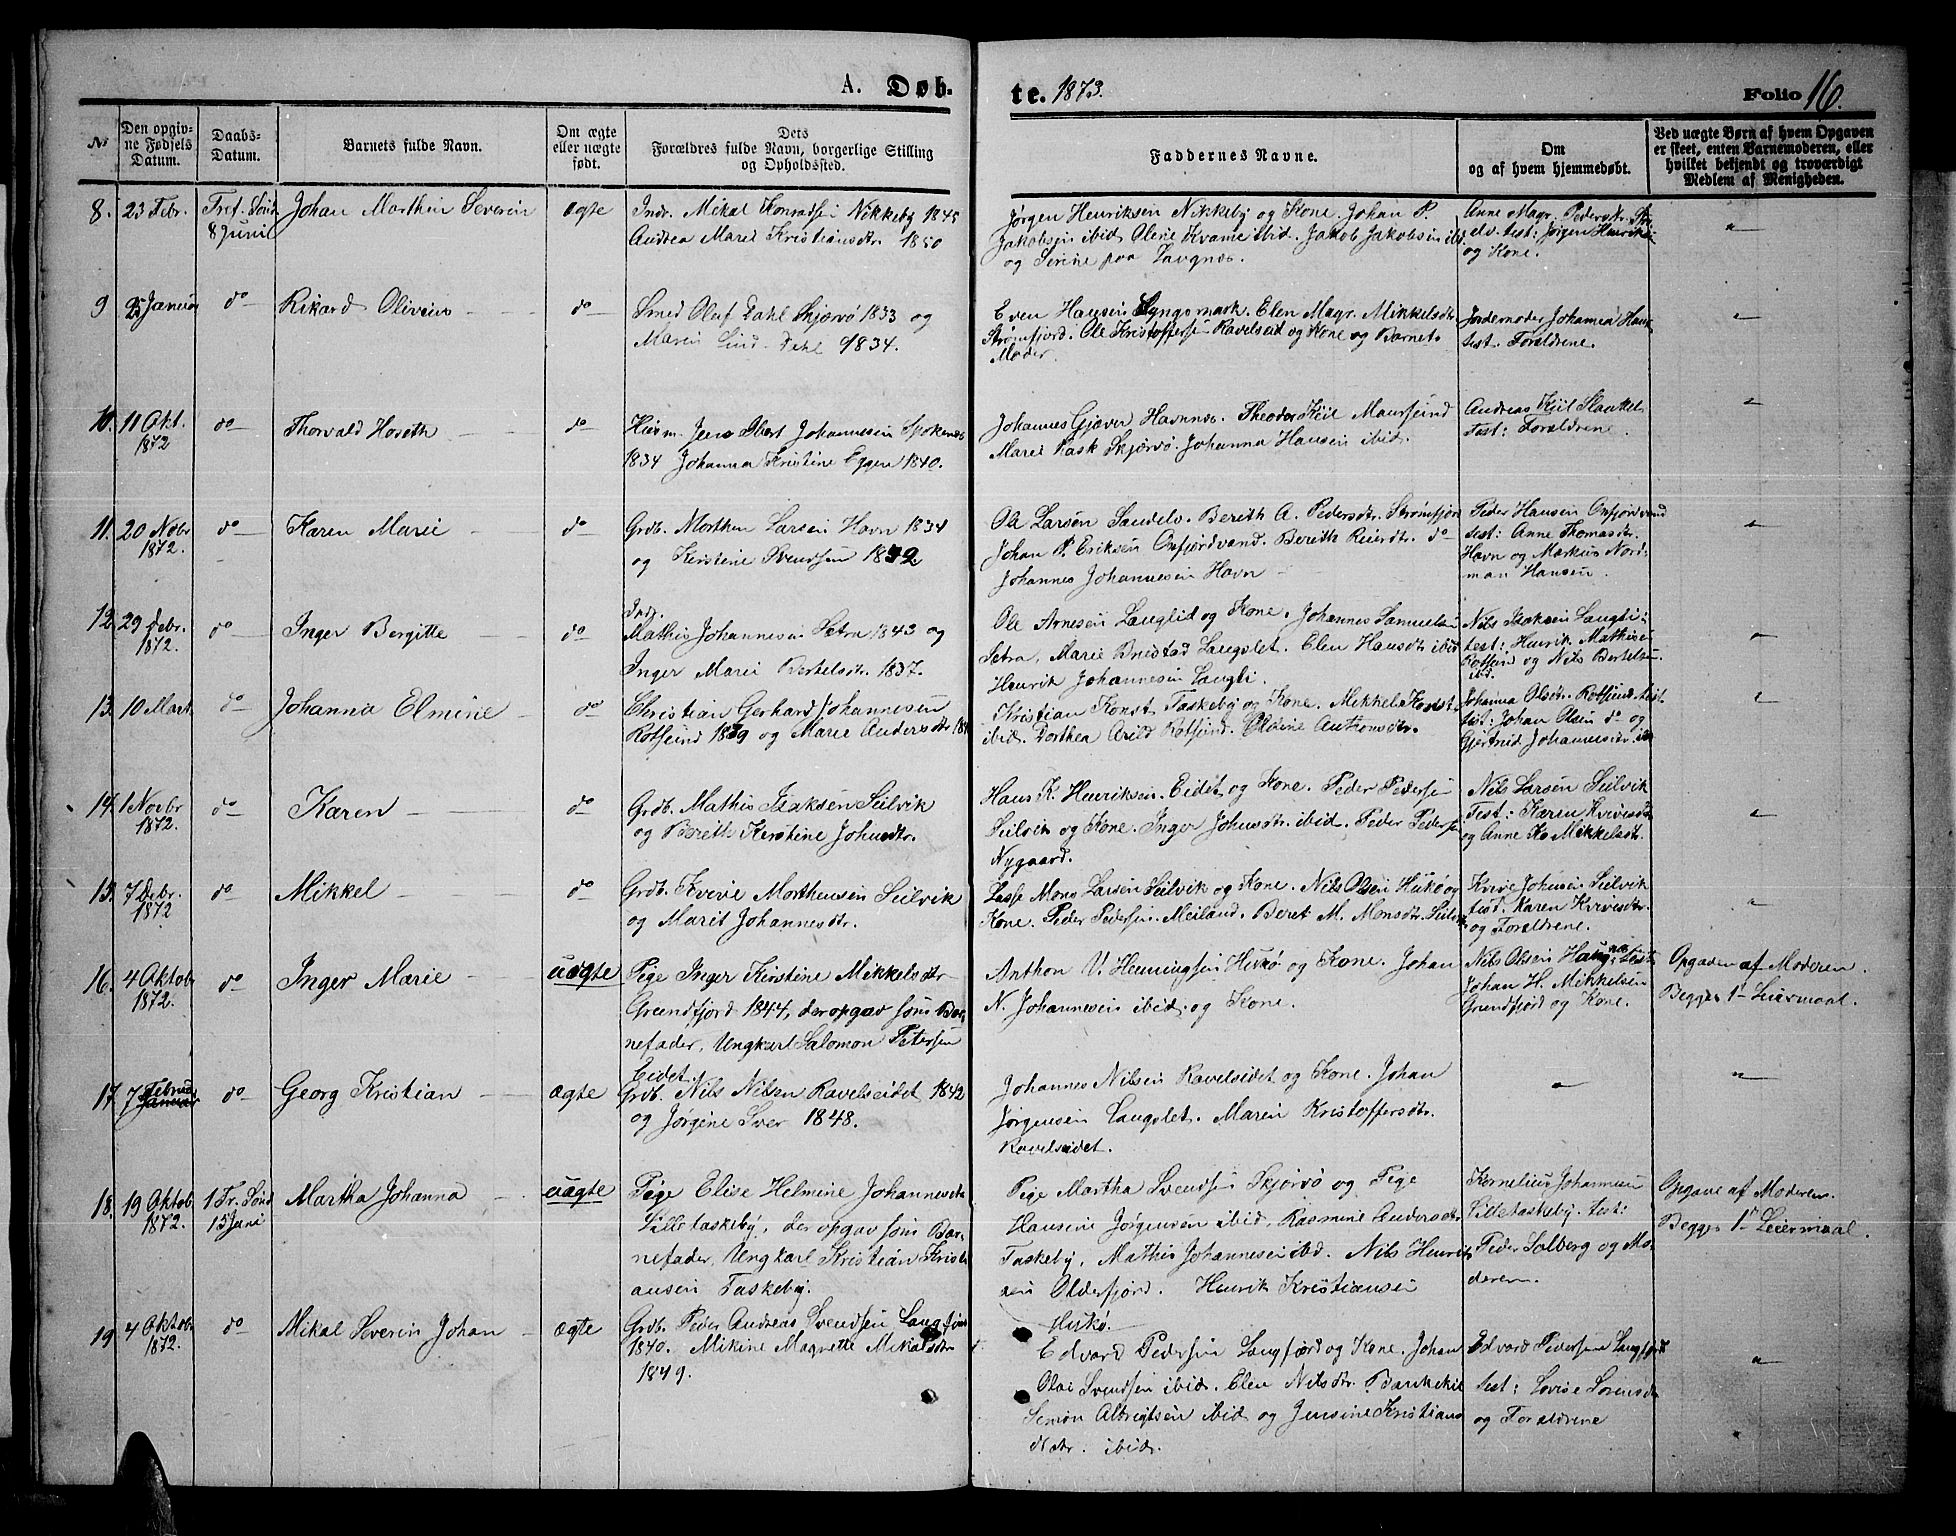 A. Døb-
te. 1873.
Folio 16.
No
Den opgiv-
ne Fødsels
Datum.
Daabs-
Datum.
Barnets fulde Navn.
Om ægte
eller uægte
født.
Dets
Forældres fulde Navn, borgerlige Stilling
og Opholdssted.
Faddernes Navne.
Om
og af hvem hjemmedøbt.
Ved uægte Børn af hvem Opgaven
er skeet, enten Barnemoderen, eller
hvilket bekjendt og troværdigt
Medlem af Menigheden.
8. 23 Febr.
8 Juni
Johan Morthin Severin
ægte
Indr. Mikal Konradsen Nikkeby 1845
Andrea Marie Kristiansdtr. 1850
Jørgen Henriksen Nikkeby og Kone. Johan P.
Jakobsen ibid. Olene Kvame ibid. Jakob Jakobsen ibid
og Serine paa Laugnes.
Anne Magr. Pedersdtr.
test: Jørgen Henriksen
og Kone.
9 25 Januar
do
Rikard Oliveus
do
Smed Oluf Dahl Skjervö 1833 og
Maren Lind Dahl 1834.
Even Hansen Lyngsmark. Elen Magr. Mikkelsdtr.
Strømfjord. Ole Kristoffersen Ravelseid og Kone og Barnets
Moder.
Jordemoder Johanna
test. Forældrene.
10. 11 Okt.
1872
do
Thorvald Horeth
do
Husm. Jens Ebert Johannesen Spokenes
1834 Johanna Kristine Eggen 1840.
Johannes Gjæver Havnnes. Theodor Kiil Maursund
Marie Rask Skjervö. Johanna Hansen ibid.
Andreas Kiil
Test: Forældrene.
11. 20 Novbr
1872.
do
Karen Marie
do
Grdb. Morthen Larsen Havn 1834
og Kirstine Svendsen 1832
Ole Larsen Sandelv. Berith A. Pedersdtr. Strømfjord
Johan P. Eriksen Oxfjordvand. Berith Reiersdtr. do
Johannes Johannesen Havn
Peder Hansen Oxfjordvand
test: Anne Thomasdtr.
Havn og Markus Nord-
man Hansen.
12. 29 Debr.
1872.
do
Inger Bergitte
do
Indr.
Mathis Johannesen Setra 1843 og
Inger Marie Bertelsdtr. 1837.
Ole Arnesen Langlid og Kone. Johannes Samuelsen
Setra. Marie Bristad Langslet. Elen Hansdtr ibid
Henrik Johannesen Langli.
Nils Isaksen Langli
test: Henrik Mathisen
Rotsund og Nils Bertelsen
ibd.
13. 10 Mart
do
Johanna Elmine
do
Christian Gerhard Johannesen
Rotsund 1839 og Marie Andersdtr
Kristian Konst Taskeby og Kone. Mikkel
ibid. Dorthea Arild Rotsund. Oldine Anthonsdtr.
Johanna Olsdtr. Rotsund
test: Johan Olsen do og
Gjertrud Johannesdtr. ib
14. 1 Novbr
1872.
do
Karen
do
Grdb. Mathis Isaksen Seilvik
og Berith Kirstine Johnsdtr.
Hans K. Henriksen. Eidet og Kone. Peder Pedersen
Seilvik og Kone. Inger Johnsdtr. ibid. Peder Pedersen
Nygaard.
Nils Larsen Seilvik
Test: Karen
og Anne Ka Mikkelsdtr.
15. 7 Debr.
1872
do
Mikkel
do
Grdb. Kverie Morthensen Seilvik
og Marit Johannesdtr.
Lasse Mons Larsen Seilvik og Kone. Nils Olsen Hukø og
Kone. Peder Pedersen. Meiland. Beret M. Monsdtr. Seilvik
Johnsen Seilvik
test. Karen
og Forældrene.
16. 4 Oktob
1872.
do
Inger Marie
uægte
Pige Inger Kirstine Mikkelsdtr
Grundfjord 1844, der opgav som Bar-
nefader, Ungkarl Salomon Petersen
Eidet.
Anthon V. Henningsen Hukø og Kone. Johan
N. Johannesen ibid. og Kone.
Nils Olsen Haugnæs
Johan H. Mikkelsen
Grundfjord og Kone.
Opgaven af Moderen.
Begges 1te Leiermaal.
17. 7 Februar
Januar
do
Georg Kristian
ægte
Grdb. Nils Nilsen Ravelseidet 1842
og Jørgine Iver 1848.
Johannes Nilsen Ravelseidet og Kone. Johan
Jørgensen Langslet. Maren Kristoffersdtr.
Ravelseidet.
18. 19 Oktob
1872.
1 Tr. Sönd
15 Juni
Martha Johanna
uægte
Pige Elise Helmine Johannesdtr
Lilletaskeby, der opgav som Bar-
nefader, Ungkarl Kristian Kristi-
ansen Taskeby.
Pige Martha Svendsen Skjervö og Pige
Hansine Jørgensen ibid. Rasmine Andersdtr
Taskeby, Mathis Johannesen ibd. Nils Henrik-
sen Olderfjord. Henrik Kristiansen
Hukø.
Kornelius Johannesen
Lilletaskeby. test:
Peder Solberg og Mo-
deren.
Opgave af Moderen.
Begges 1te Leiermaal.
19. 4 Oktob
1872.
do
Mikal Severin Johan
ægte
Grdb. Peder Andreas Svendsen Langfjord
1840. Mikine Magrette Mikalsdtr
1849.
Edvard Pedersen Langfjord og Kone. Johan
Olai Svendsen ibid. Elen Nilsdtr.
Simon Albrigtsen ibid og Jensine Kristians
datr. ibid.
Edvard Pedersen Langfjord
test: Lovise Lorensdtr
og Forældrene